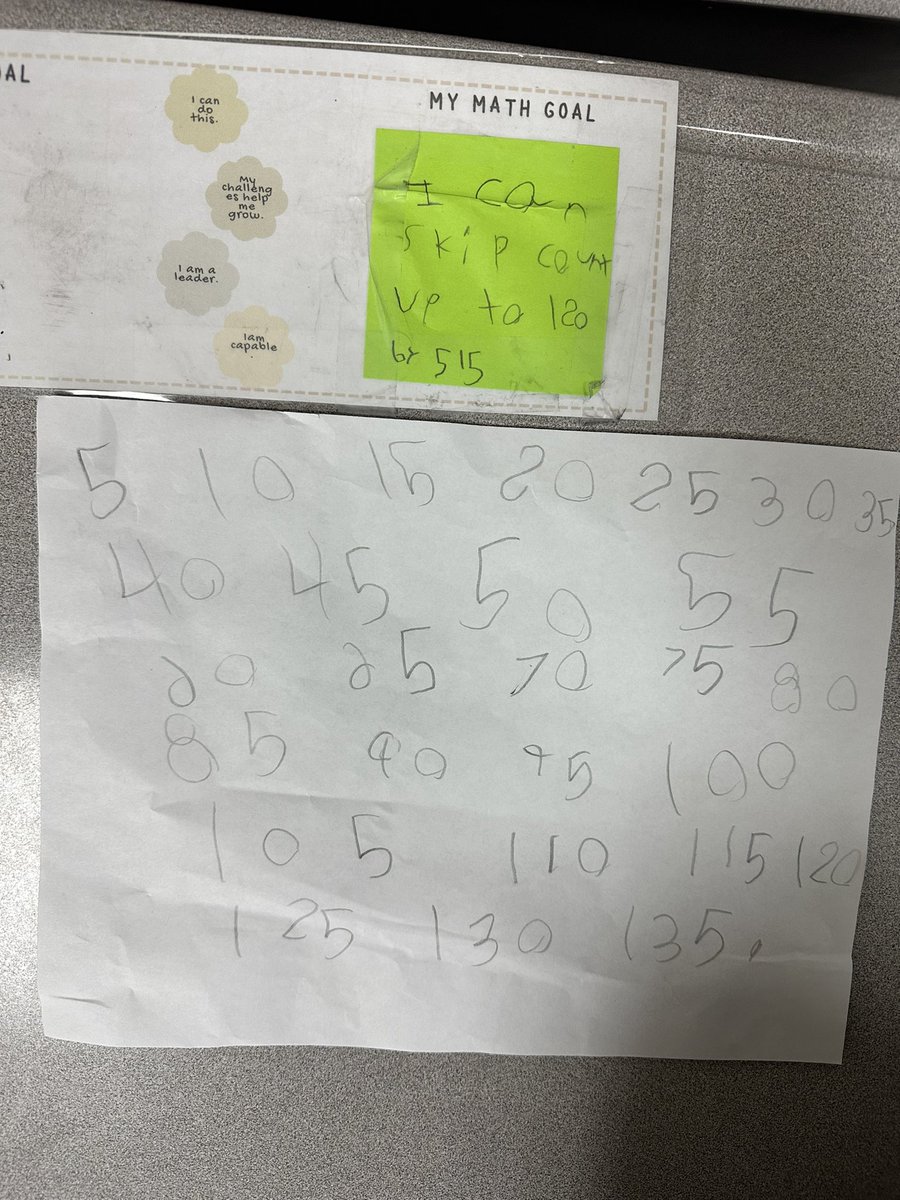 OAL
I can
do
this.
My
challeng
es help
me
grow.
I am a
leader.
Iam
capable
MY MATH GOAL
I can
skip count
up to 120
by 515
5 10 15 20 25 30 35
40 45 50 55
60 65 70 75 80
85 90 95 100
105 110 115 120
125 130 135.